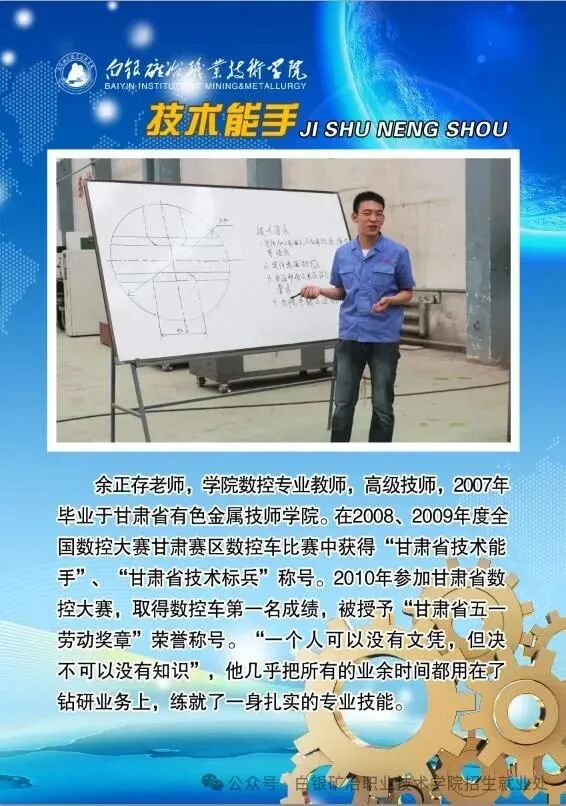 白银矿冶职业技术学院
BAIYIN INSTITUTE OF MINING&METALLURGY
技术能手 JI SHU NENG SHOU
技术要求
余正存老师，学院数控专业教师，高级技师，2007年
毕业于甘肃省有色金属技师学院。在2008、2009年度全
国数控大赛甘肃赛区数控车比赛中获得“甘肃省技术能
手”、“甘肃省技术标兵”称号。2010年参加甘肃省数
控大赛，取得数控车第一名成绩，被授予“甘肃省五一
劳动奖章”荣誉称号。“一个人可以没有文凭，但决
不可以没有知识”，他几乎把所有的业余时间都用在了
钻研业务上，练就了一身扎实的专业技能。
公众号 · 白银矿冶职业技术学院招生就业处